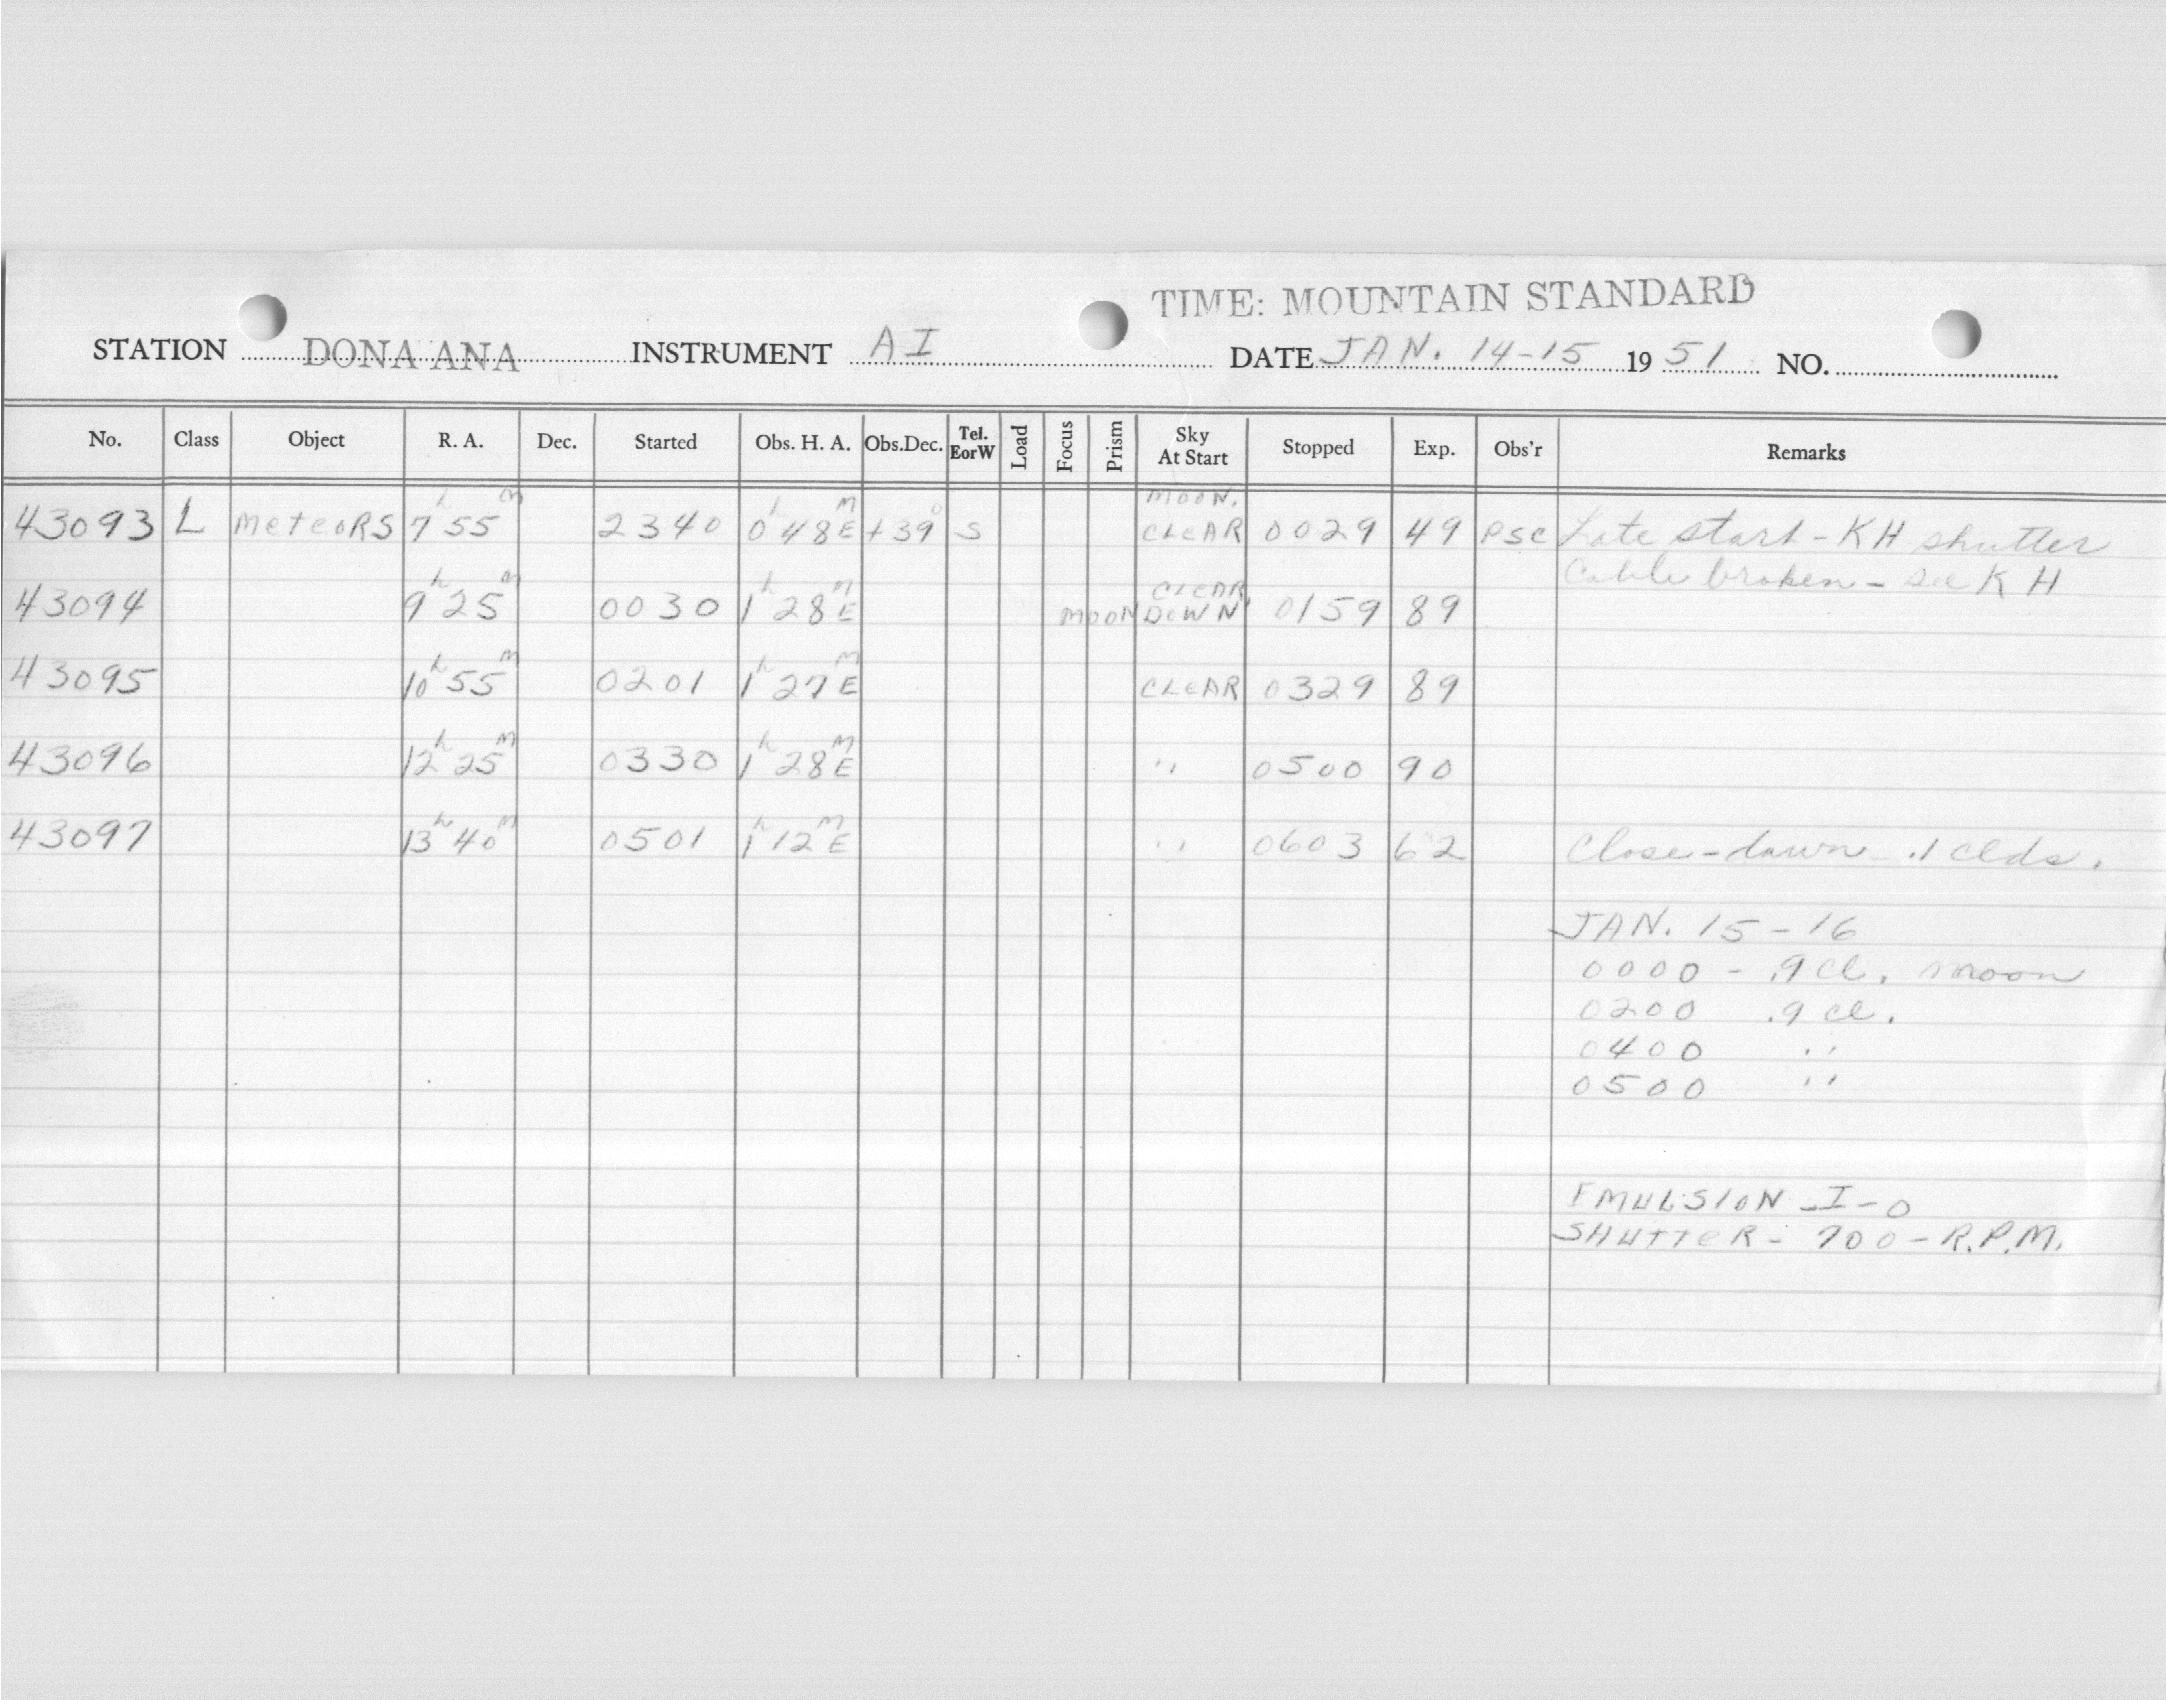 TIME: MOUNTAIN STANDARD
STATION DONA ANA INSTRUMENT AI DATE JAN. 14-15 1951 NO.
No. Class Object R. A. Dec. Started Obs. H. A. Obs.Dec. Tel. EorW Load Focus Prism Sky At Start Stopped Exp. Obs'r Remarks
43093 L METEORS 7h 55m 2340 0h 48m E +39° S MOON. CLEAR 0029 49 PSC Late start - KH shutter
Cable broken - see KH
43094 9h 25m 0030 1h 28m E CLEAR MOON DOWN 0159 89
43095 10h 55m 0201 1h 27m E CLEAR 0329 89
43096 12h 25m 0330 1h 28m E " 0500 90
43097 13h 40m 0501 1h 12m E " 0603 62 Close - dawn .1 clds.
JAN. 15-16
0000 - .9 cl. moon
0200 .9 cl.
0400 "
0500 "
EMULSION - I-O
SHUTTER - 700 - R.P.M.